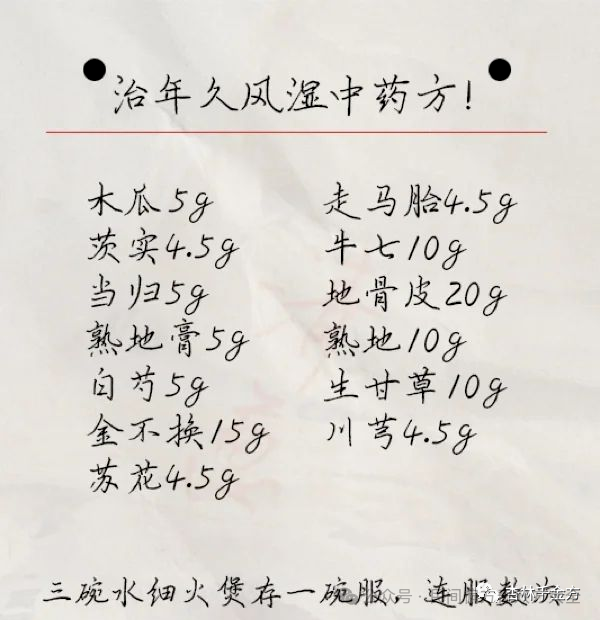 治年久风湿中药方!
木瓜5g 走马胎4.5g
茨实4.5g 牛七10g
当归5g 地骨皮20g
熟地膏5g 熟地10g
白芍5g 生甘草10g
金不换15g 川芎4.5g
苏花4.5g
三碗水细火煲存一碗服,连服数次
杏林千金方